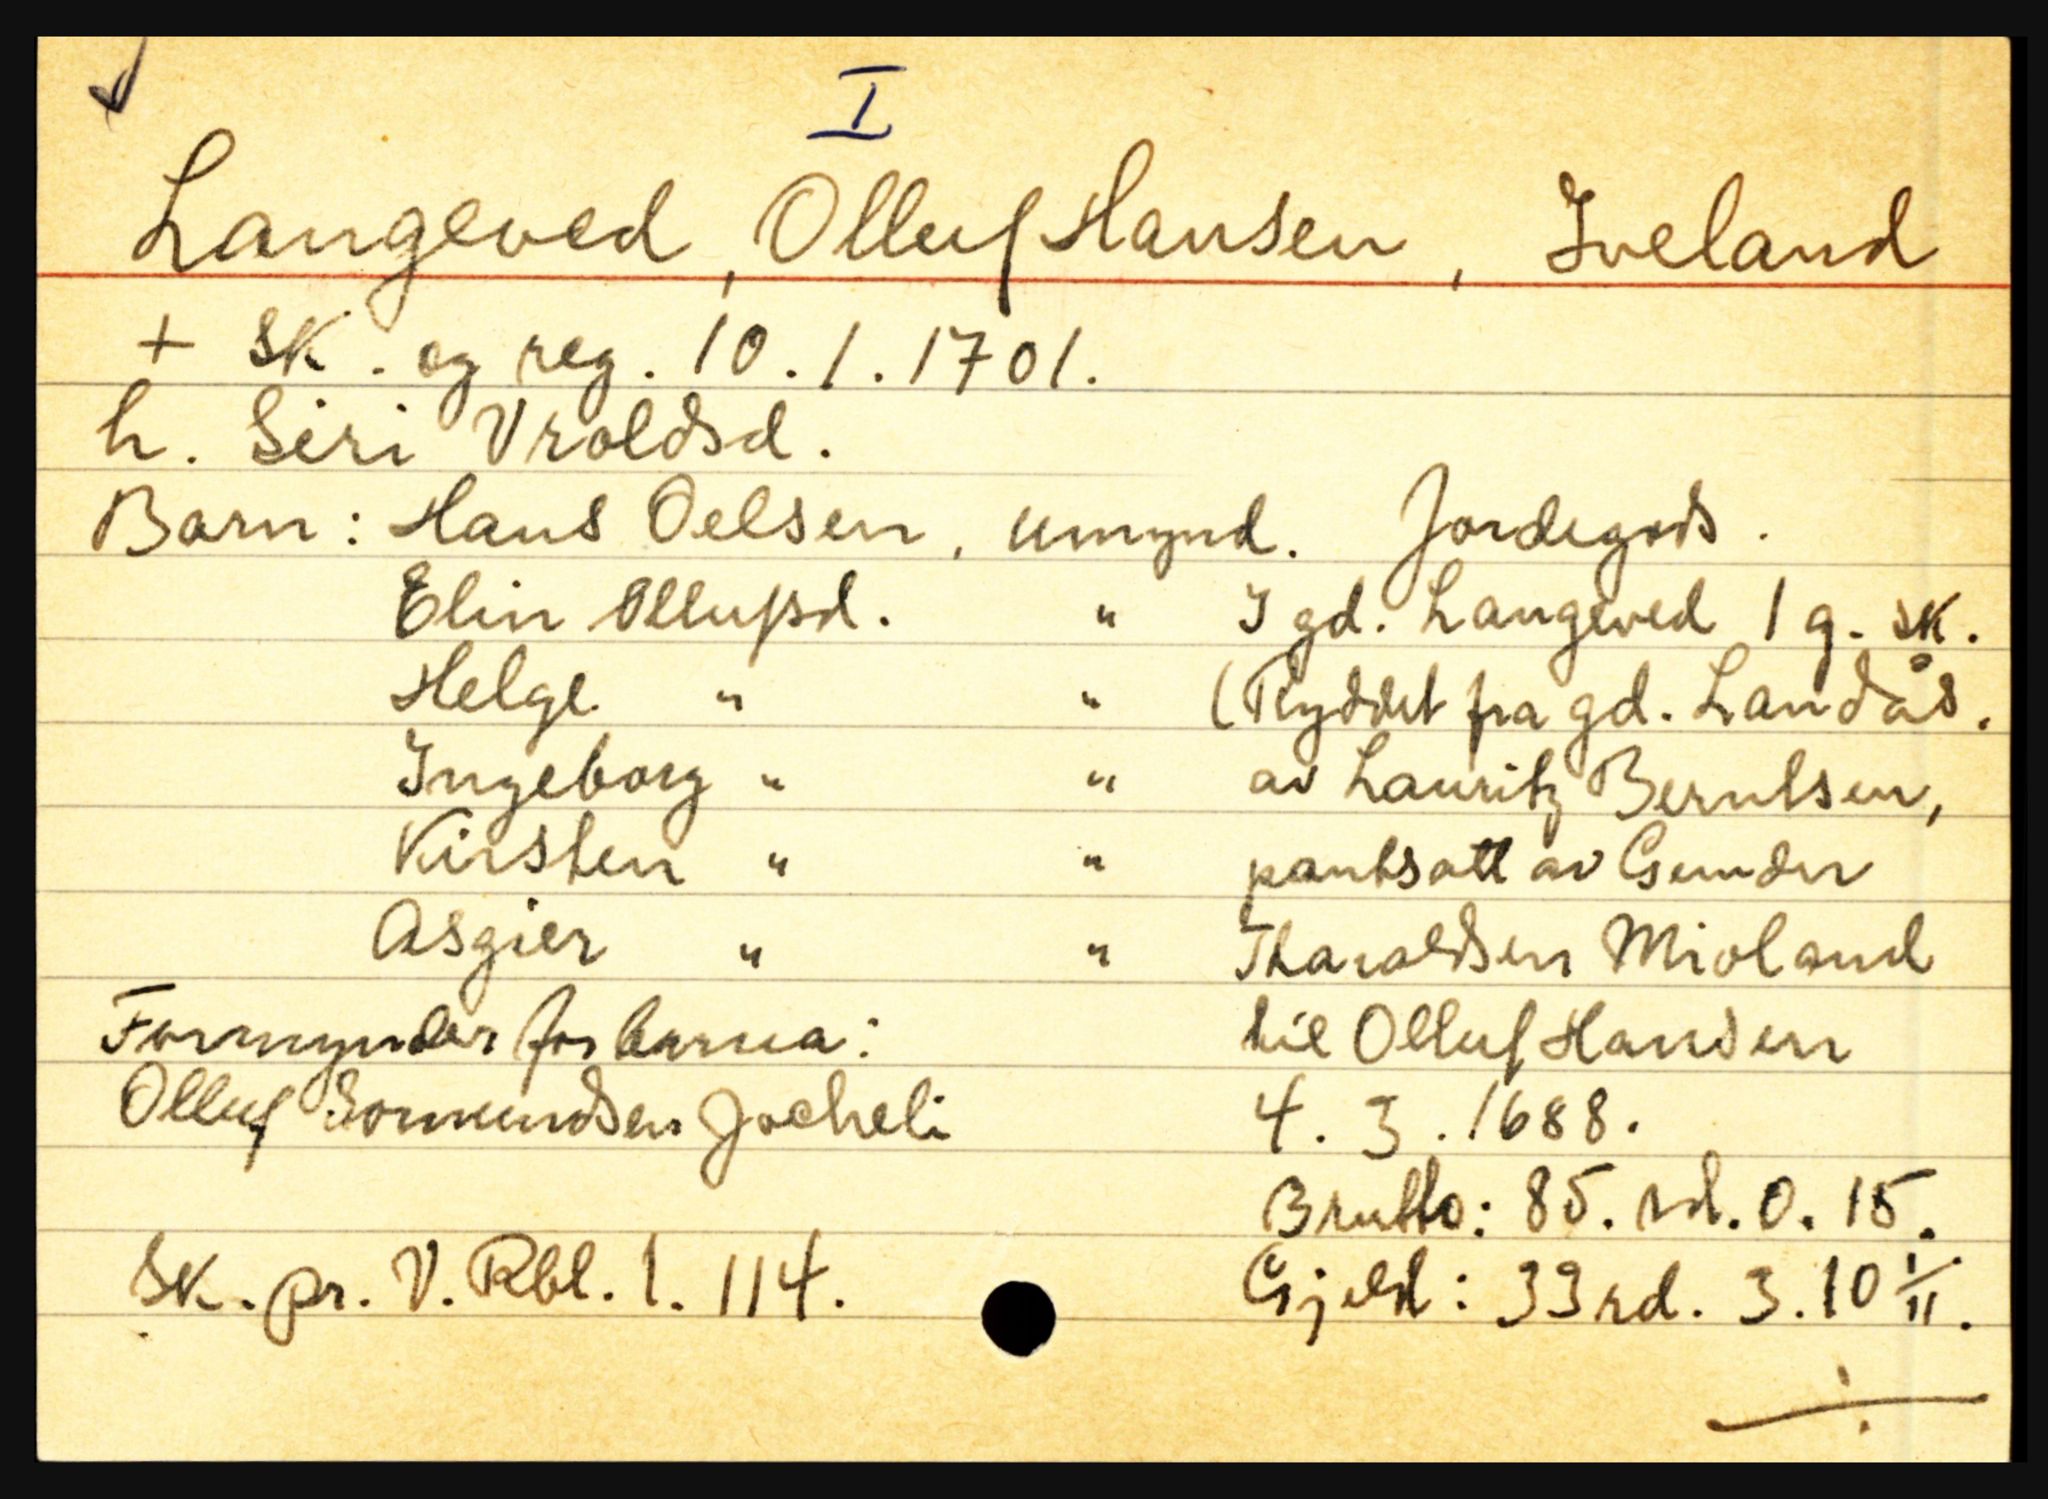 I
Langeved, Olluf Hansen, Iveland
+ Sk. og reg. 10.1.1701.
h. Siri Vroldsd.
Barn: Hans Oelsen, umynd.
Elin Ollufsd. "
Helge " "
Ingeborg " "
Kirsten " "
Asgier " "
Formynder for barna:
Olluf Gormundsen Jocheli
Sk. pr. V. Rbl. 1. 114.
Jordegods.
I gd. Langeved 1 g. sk.
(Ryddet fra gd. Landås.
av Lauritz Berntsen,
pantsatt av Gunder
Tharaldsen Mioland
til Olluf Hansen
4. 3. 1688.
Brutto: 85. rd. 0. 15.
Gjeld: 33 rd. 3. 10 1/11.